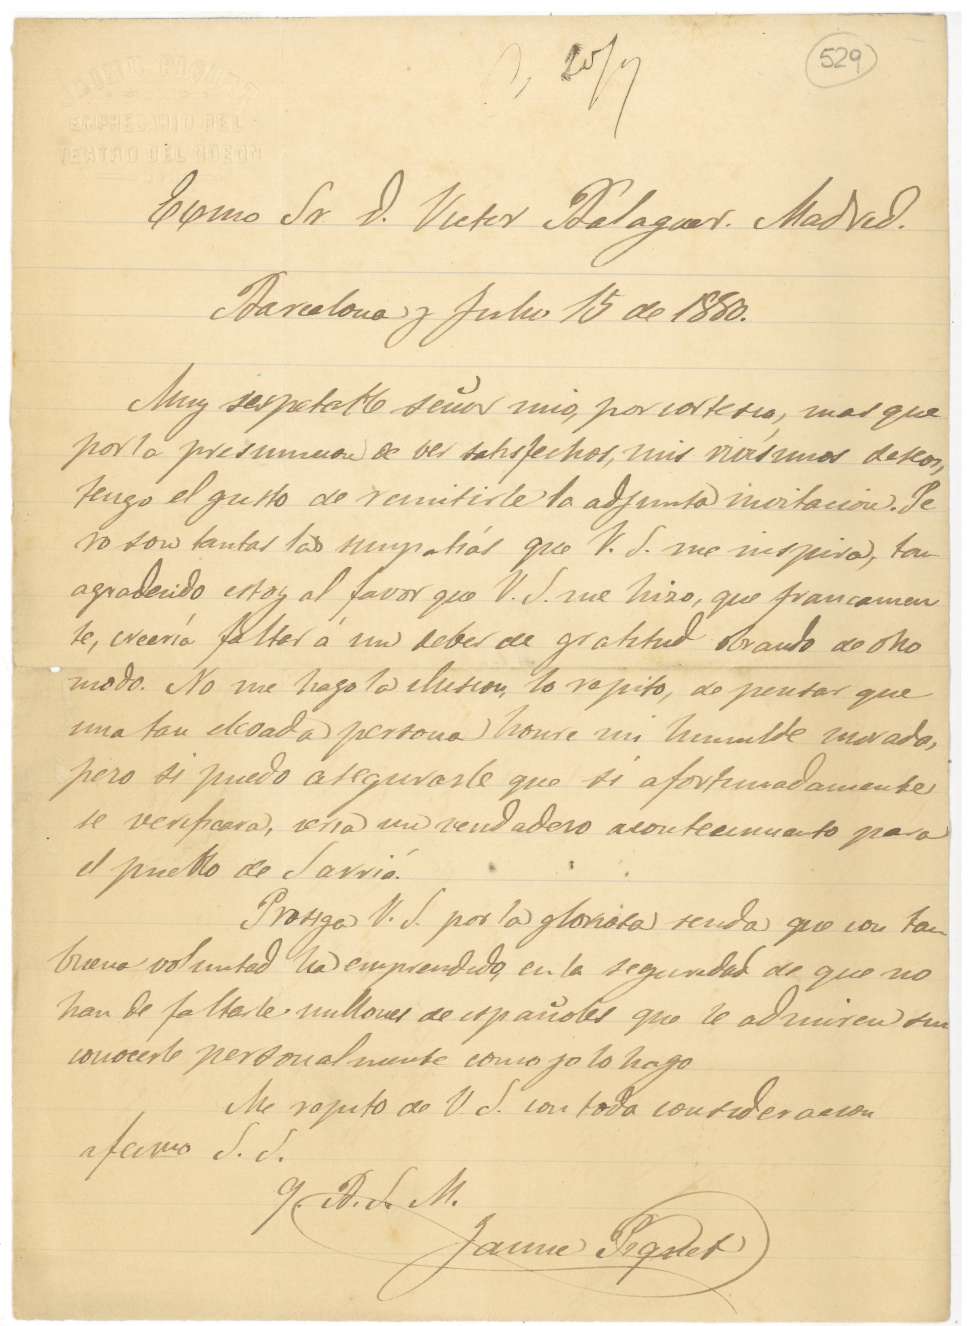 529
20/7
JAIME PIQUET
EMPRESARIO DEL
TEATRO DEL ODEON
Exmo Sr D. Victor Balaguer. Madrid.
Barcelona y Julio 15 de 1880.
Muy respetable señor mio, por cortesia, mas que
por la presuncion de ver satisfechos, mis vivisimos deseos,
tengo el gusto de remitirle la adjunta invitacion. Pe
ro son tantas las simpatias que V. S. me inspira, tan
agradecido estoy al favor que V. S. me hizo, que francamen
te, creeria faltar á un deber de gratitud obrando de otro
modo. No me hago la ilusion, lo repito, de pensar que
una tan elevada persona honre mi humilde morada,
pero si puedo asegurarle que si afortunadamente
se verificara, seria un vendadero acontecimiento para
el pueblo de Sarriá.
Prosiga V. S. por la gloriosa senda que con tan
buena voluntad ha emprendido, en la seguridad de que no
han de faltarle millones de españoles que le admiren sin
conocerle personalmente como yo lo hago
Me repito de V. S. con toda consideracion
afcmo S. S.
q. B. S. M.
Jaime Piquet